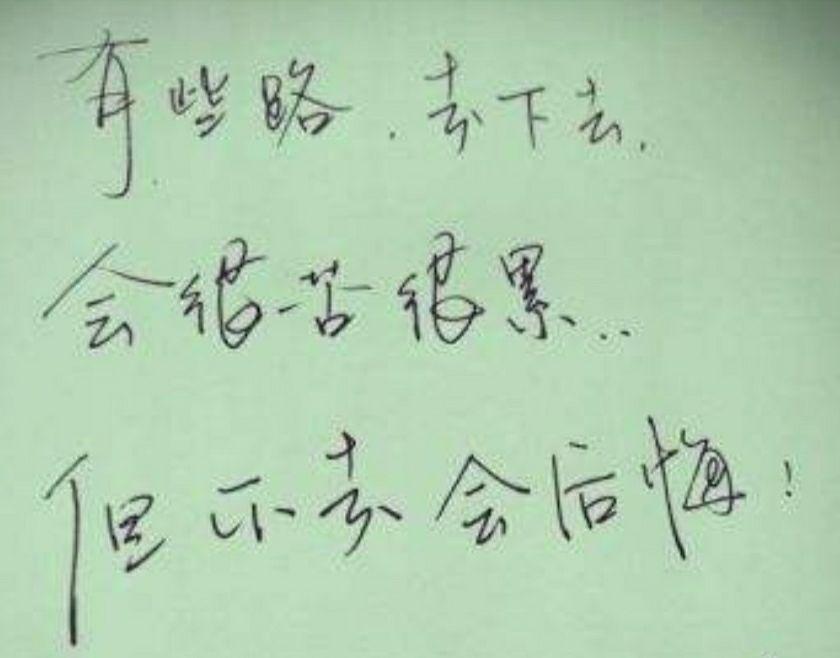 有些路，走下去，
会很苦很累..
但不走会后悔！